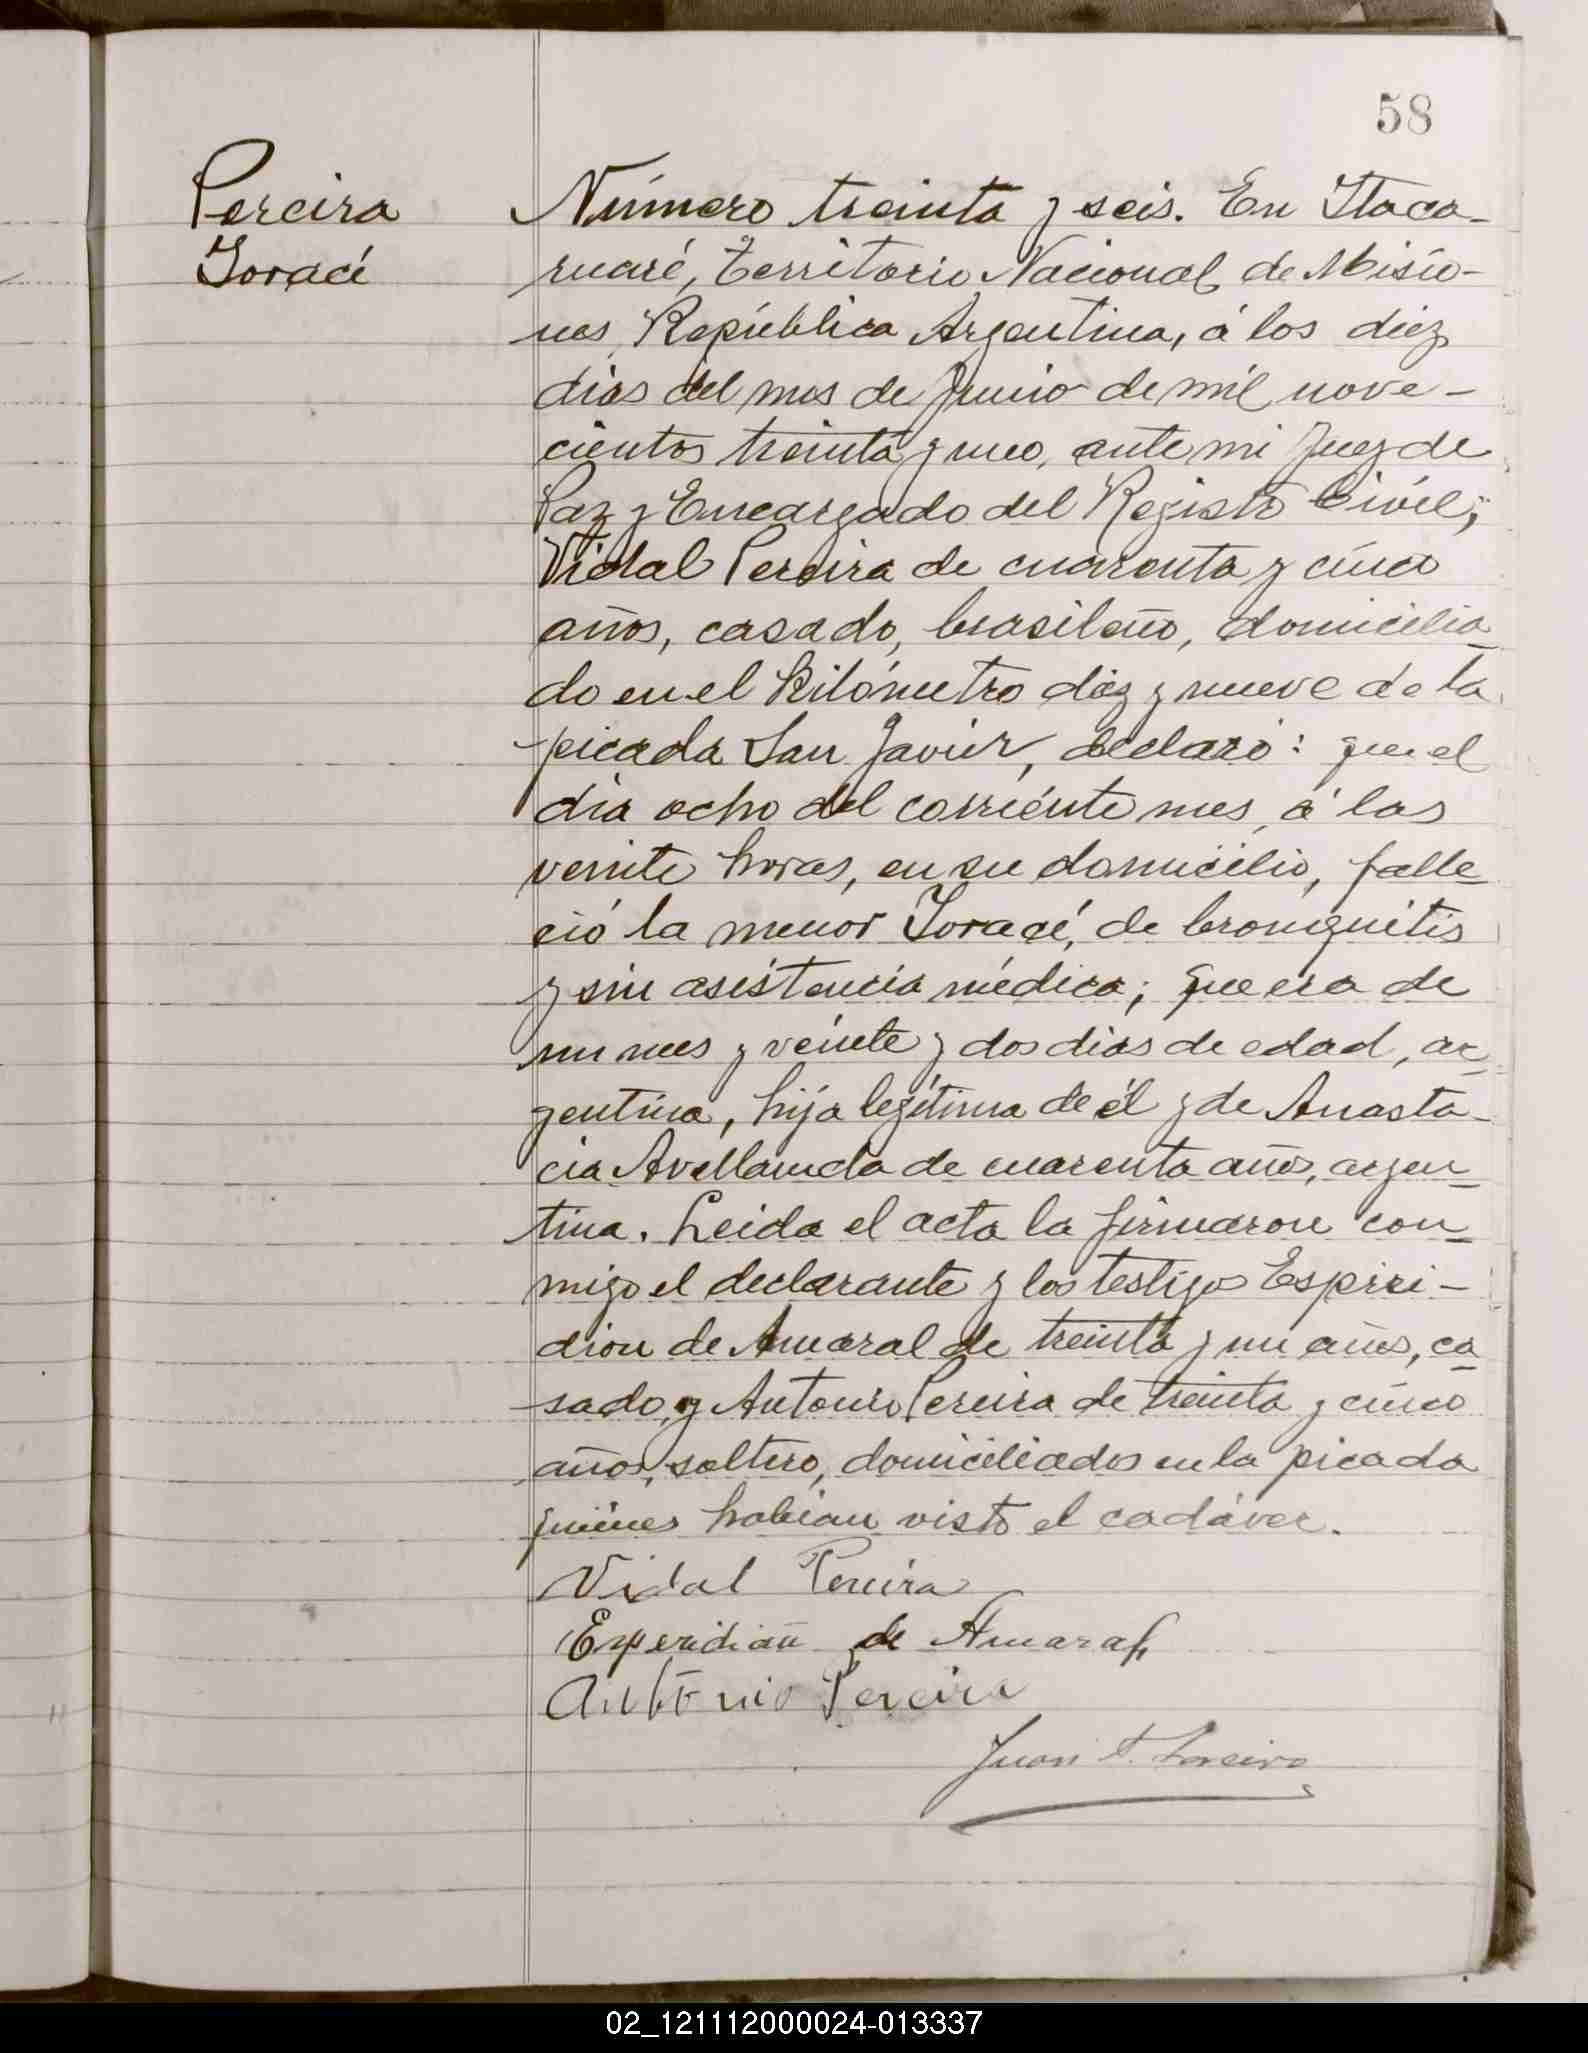 58
Pereira
Joracé
Número treinta y seis. En Itaca-
ruaré, Territorio Nacional de Misio-
nes, República Argentina, á los diez
dias del mes de Junio de mil nove-
cientos treinta y uno, ante mi Juez de
Paz y Encargado del Registro Civil,
Vidal Pereira de cuarenta y cinco
años, casado, brasileño, domicilia-
do en el Kilómetro diez y nueve de la
picada San Javier, declaró: que el
dia ocho del corriente mes, á las
veinte horas, en su domicilio, falle-
ció la menor Joracé, de bronquitis
y sin asistencia médica; que era de
un mes y veinte y dos dias de edad, ar-
gentina, hija legítima de él y de Anasta-
cia Avellaneda de cuarenta años, argen-
tina. Leida el acta la firmaron con-
migo el declarante y los testigos Espiri-
dion de Amaral de treinta y un años, ca-
sado, y Antonio Pereira de treinta y cinco
años, soltero, domiciliados en la picada
quiénes habian visto el cadáver.
Vidal Pereira
Esperidiañ de Amaral
Antonio Pereira
Juan
02_121112000024-013337